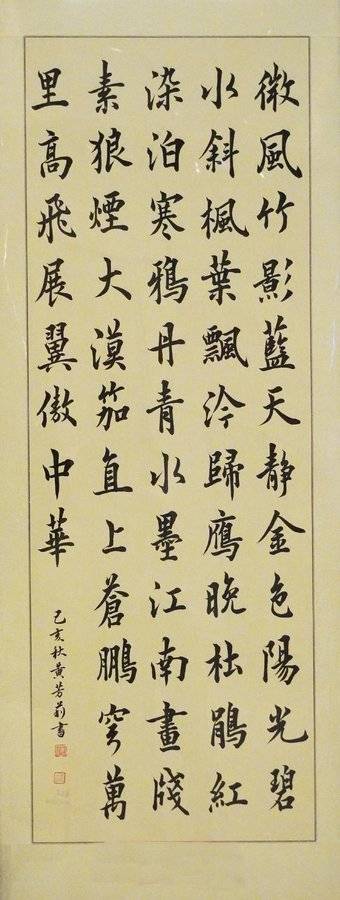 微風竹影藍天靜金色陽光碧
水斜楓葉飄泠歸鷹晚杜鵑紅
染泊寒鴉丹青水墨江南畫牋
素狼煙大漠笳直上蒼鵬穹萬
里高飛展翼傲中華
己亥秋黃芳莉書